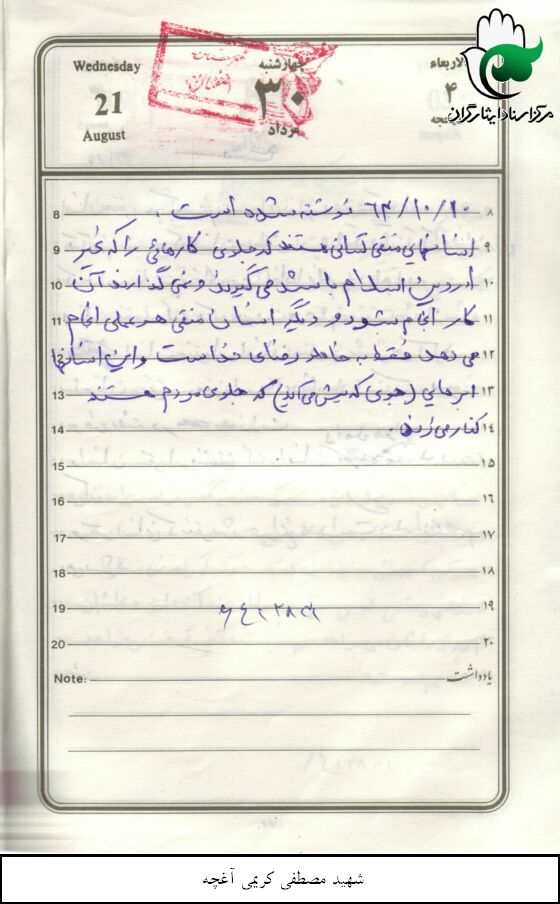 مرکز اسناد ایثارگران
Wednesday
21
August
چهارشنبه
۳۰
مرداد
الاربعاء
۴
8 ۶۴/۱۰/۱۰ نوشته شده است . ۸
9 انسانهای متقی کسانی هستند که جلوی کارهائی را که غیر ۹
10 از دین اسلام باشد می گیرند و نمی گذارند آن ۱۰
11 کار انجام شود و دیگر انسان متقی هر عملی انجام ۱۱
12 می دهد فقط بخاطر رضای خدا است و این انسانها ۱۲
13 ابرهایی (جوی که پیش می آید) که جلوی مردم هستند ۱۳
14 کنار می زند . ۱۴
15 ۱۵
16 ۱۶
17 ۱۷
18 ۱۸
19 ۱۹
20 ۲۰
Note: یادداشت
شهید مصطفی کریمی آغچه